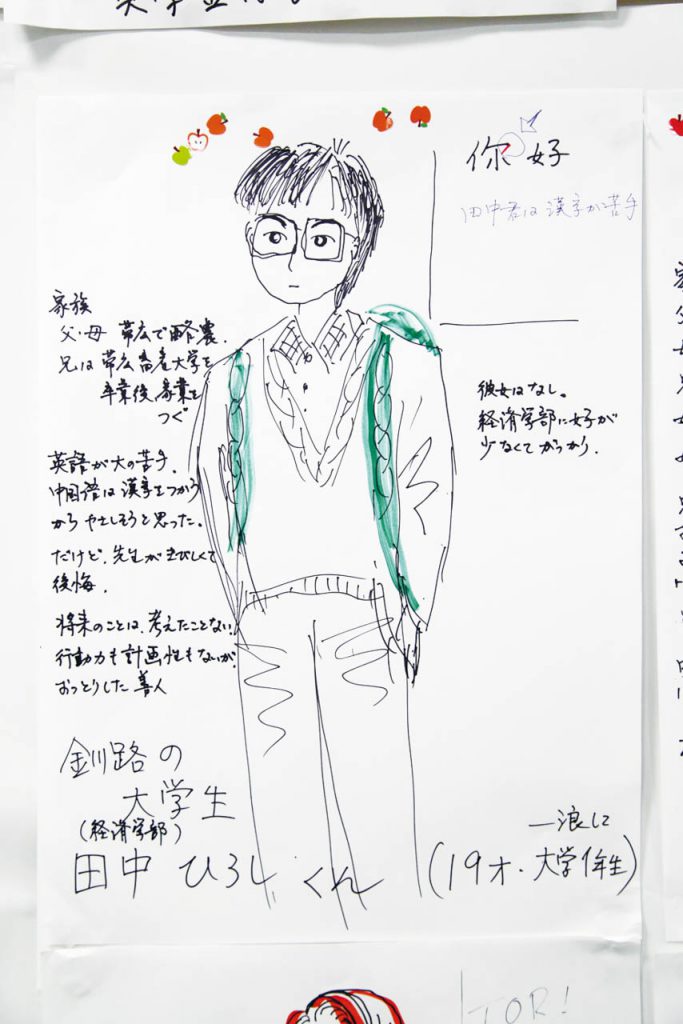 你好
田中君は漢字が苦手
家族
父・母 帯広で酪農.
兄は帯広畜産大学を
卒業後、家業を
つぐ
彼女はなし。
経済学部に女子が
少なくてがっかり.
英語が大の苦手.
中国語は漢字をつかう
からやさしそうと思った。
だけど、先生がきびしくて
後悔.
将来のことは、考えたことない.
行動力も計画性もないが
おっとりした善人
釧路の
大学生
(経済学部)
田中 ひろし くん
一浪して
(19才・大学1年生)
TOR!